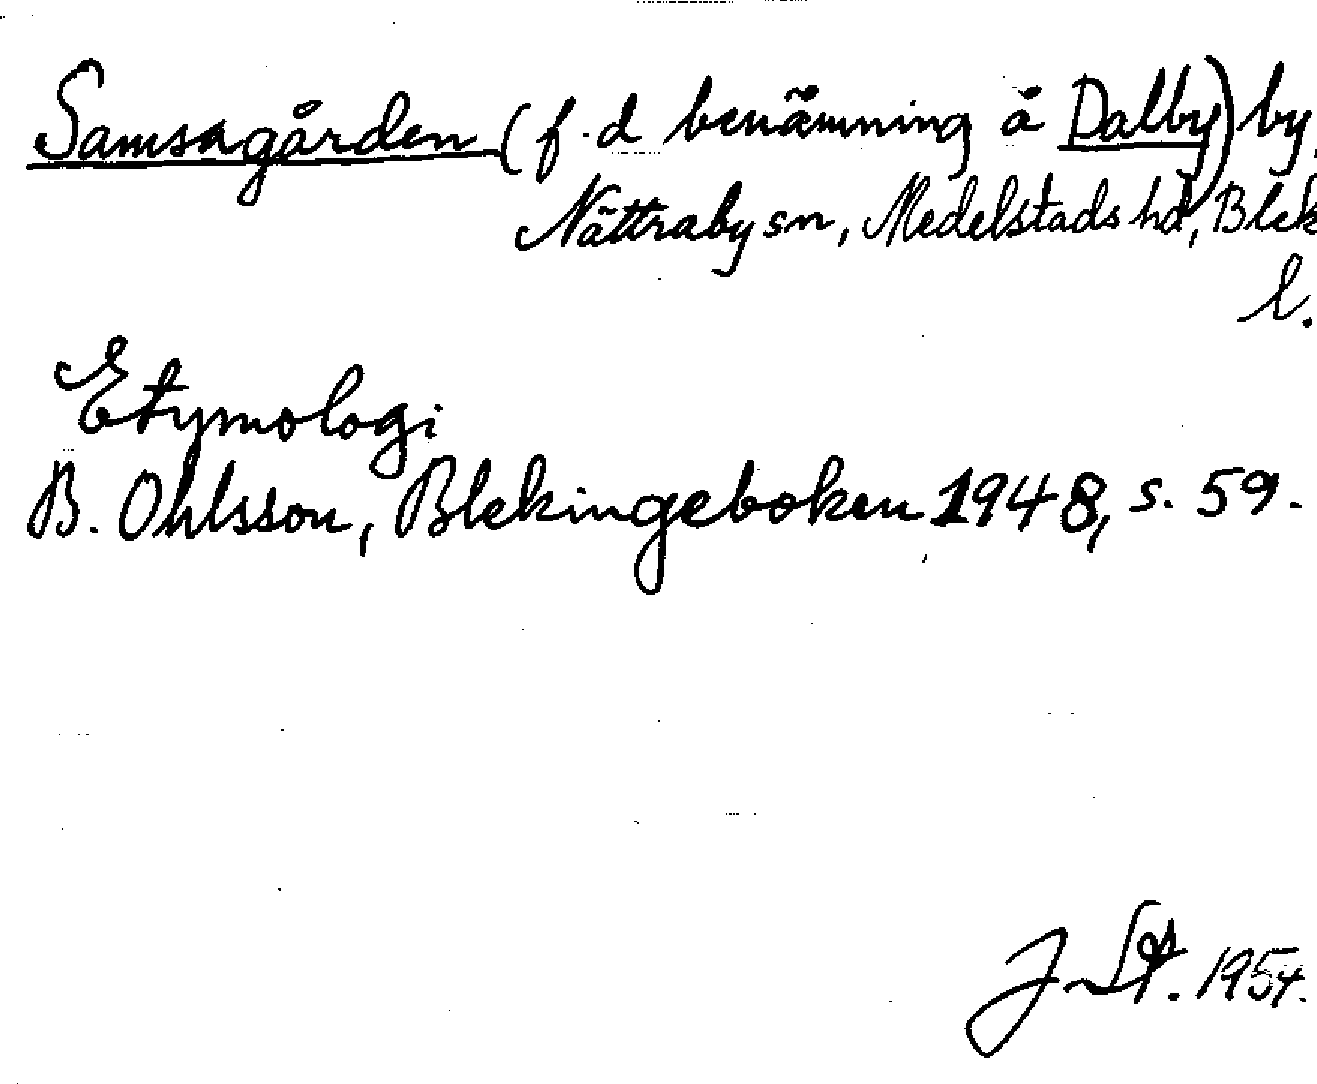 Samsagården (f.d benämning å Dalby) by,
Nättraby sn, Medelstads hd, Blek
l.
Etymologi
B. Ohlsson, Blekingeboken 1948, s. 59.
J. 1954.